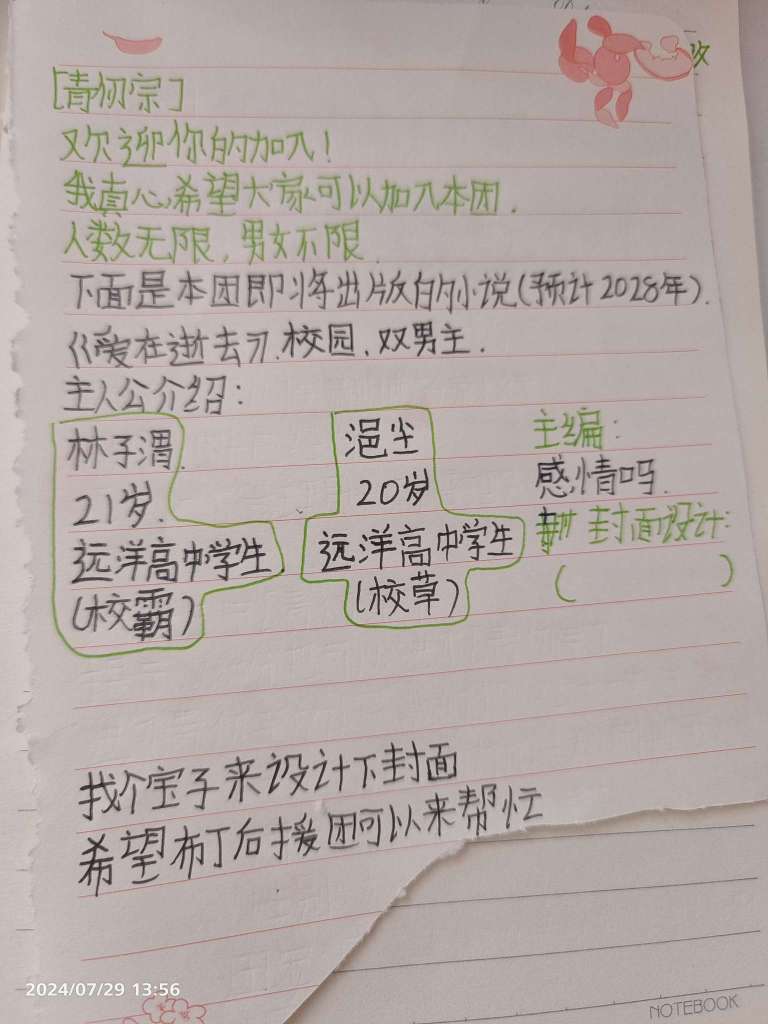 [青仞宗]
欢迎你的加入!
我真心希望大家可以加入本团.
人数无限,男女不限
下面是本团即将出版的小说(预计2028年).
《爱在逝去》.校园,双男主.
主人公介绍:
林子渭.
21岁.
远洋高中学生
(校霸)
浥尘
20岁
远洋高中学生
(校草)
主编:
感情吗.
封面设计:
( )
找个宝子来设计下封面
希望布丁后援团可以来帮忙
2024/07/29 13:56
NOTEBOOK